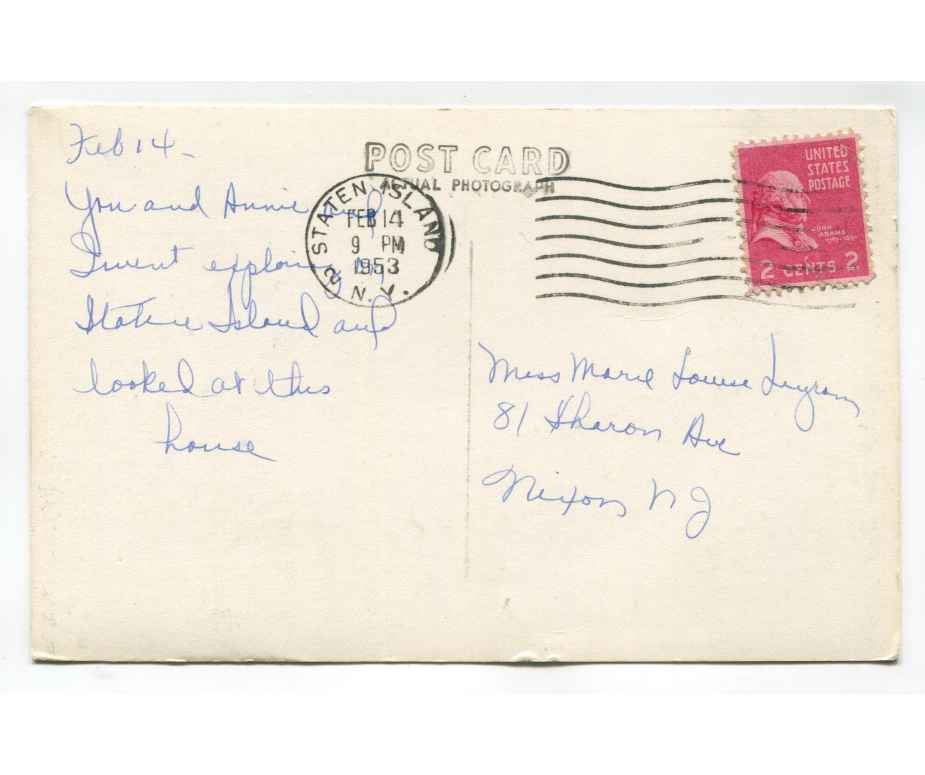 Feb 14 -
You and Annie and
I went exploring
Staten Island and
looked at this
house
POST CARD
ACTUAL PHOTOGRAPH
STATEN ISLAND
FEB 14
9 PM
1953
N.Y.
UNITED
STATES
POSTAGE
JOHN
ADAMS
2 CENTS 2
Miss Marie Louise Ingram
81 Sharon Ave
Nixon NJ